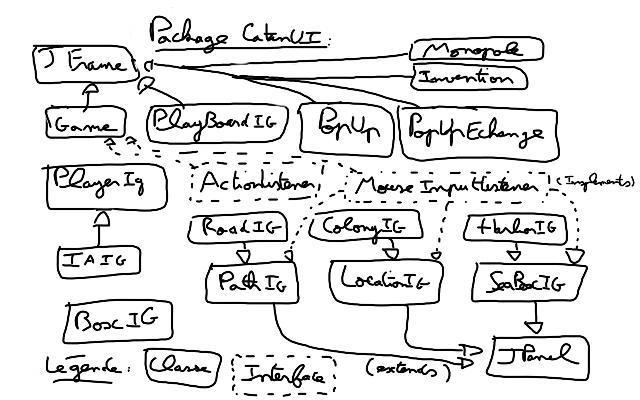 Package CatanUI:
JFrame
Monopole
Invention
Game
PlayBoardIG
PopUp
PopUpEchange
PlayerIg
ActionListener
MouseInputListener
(Implements)
RoadIG
ColonyIG
HarborIG
IAIG
PathIG
LocationIG
SeaBoxIG
BoxIG
JPanel
(extends)
Légende:
Classe
Interface